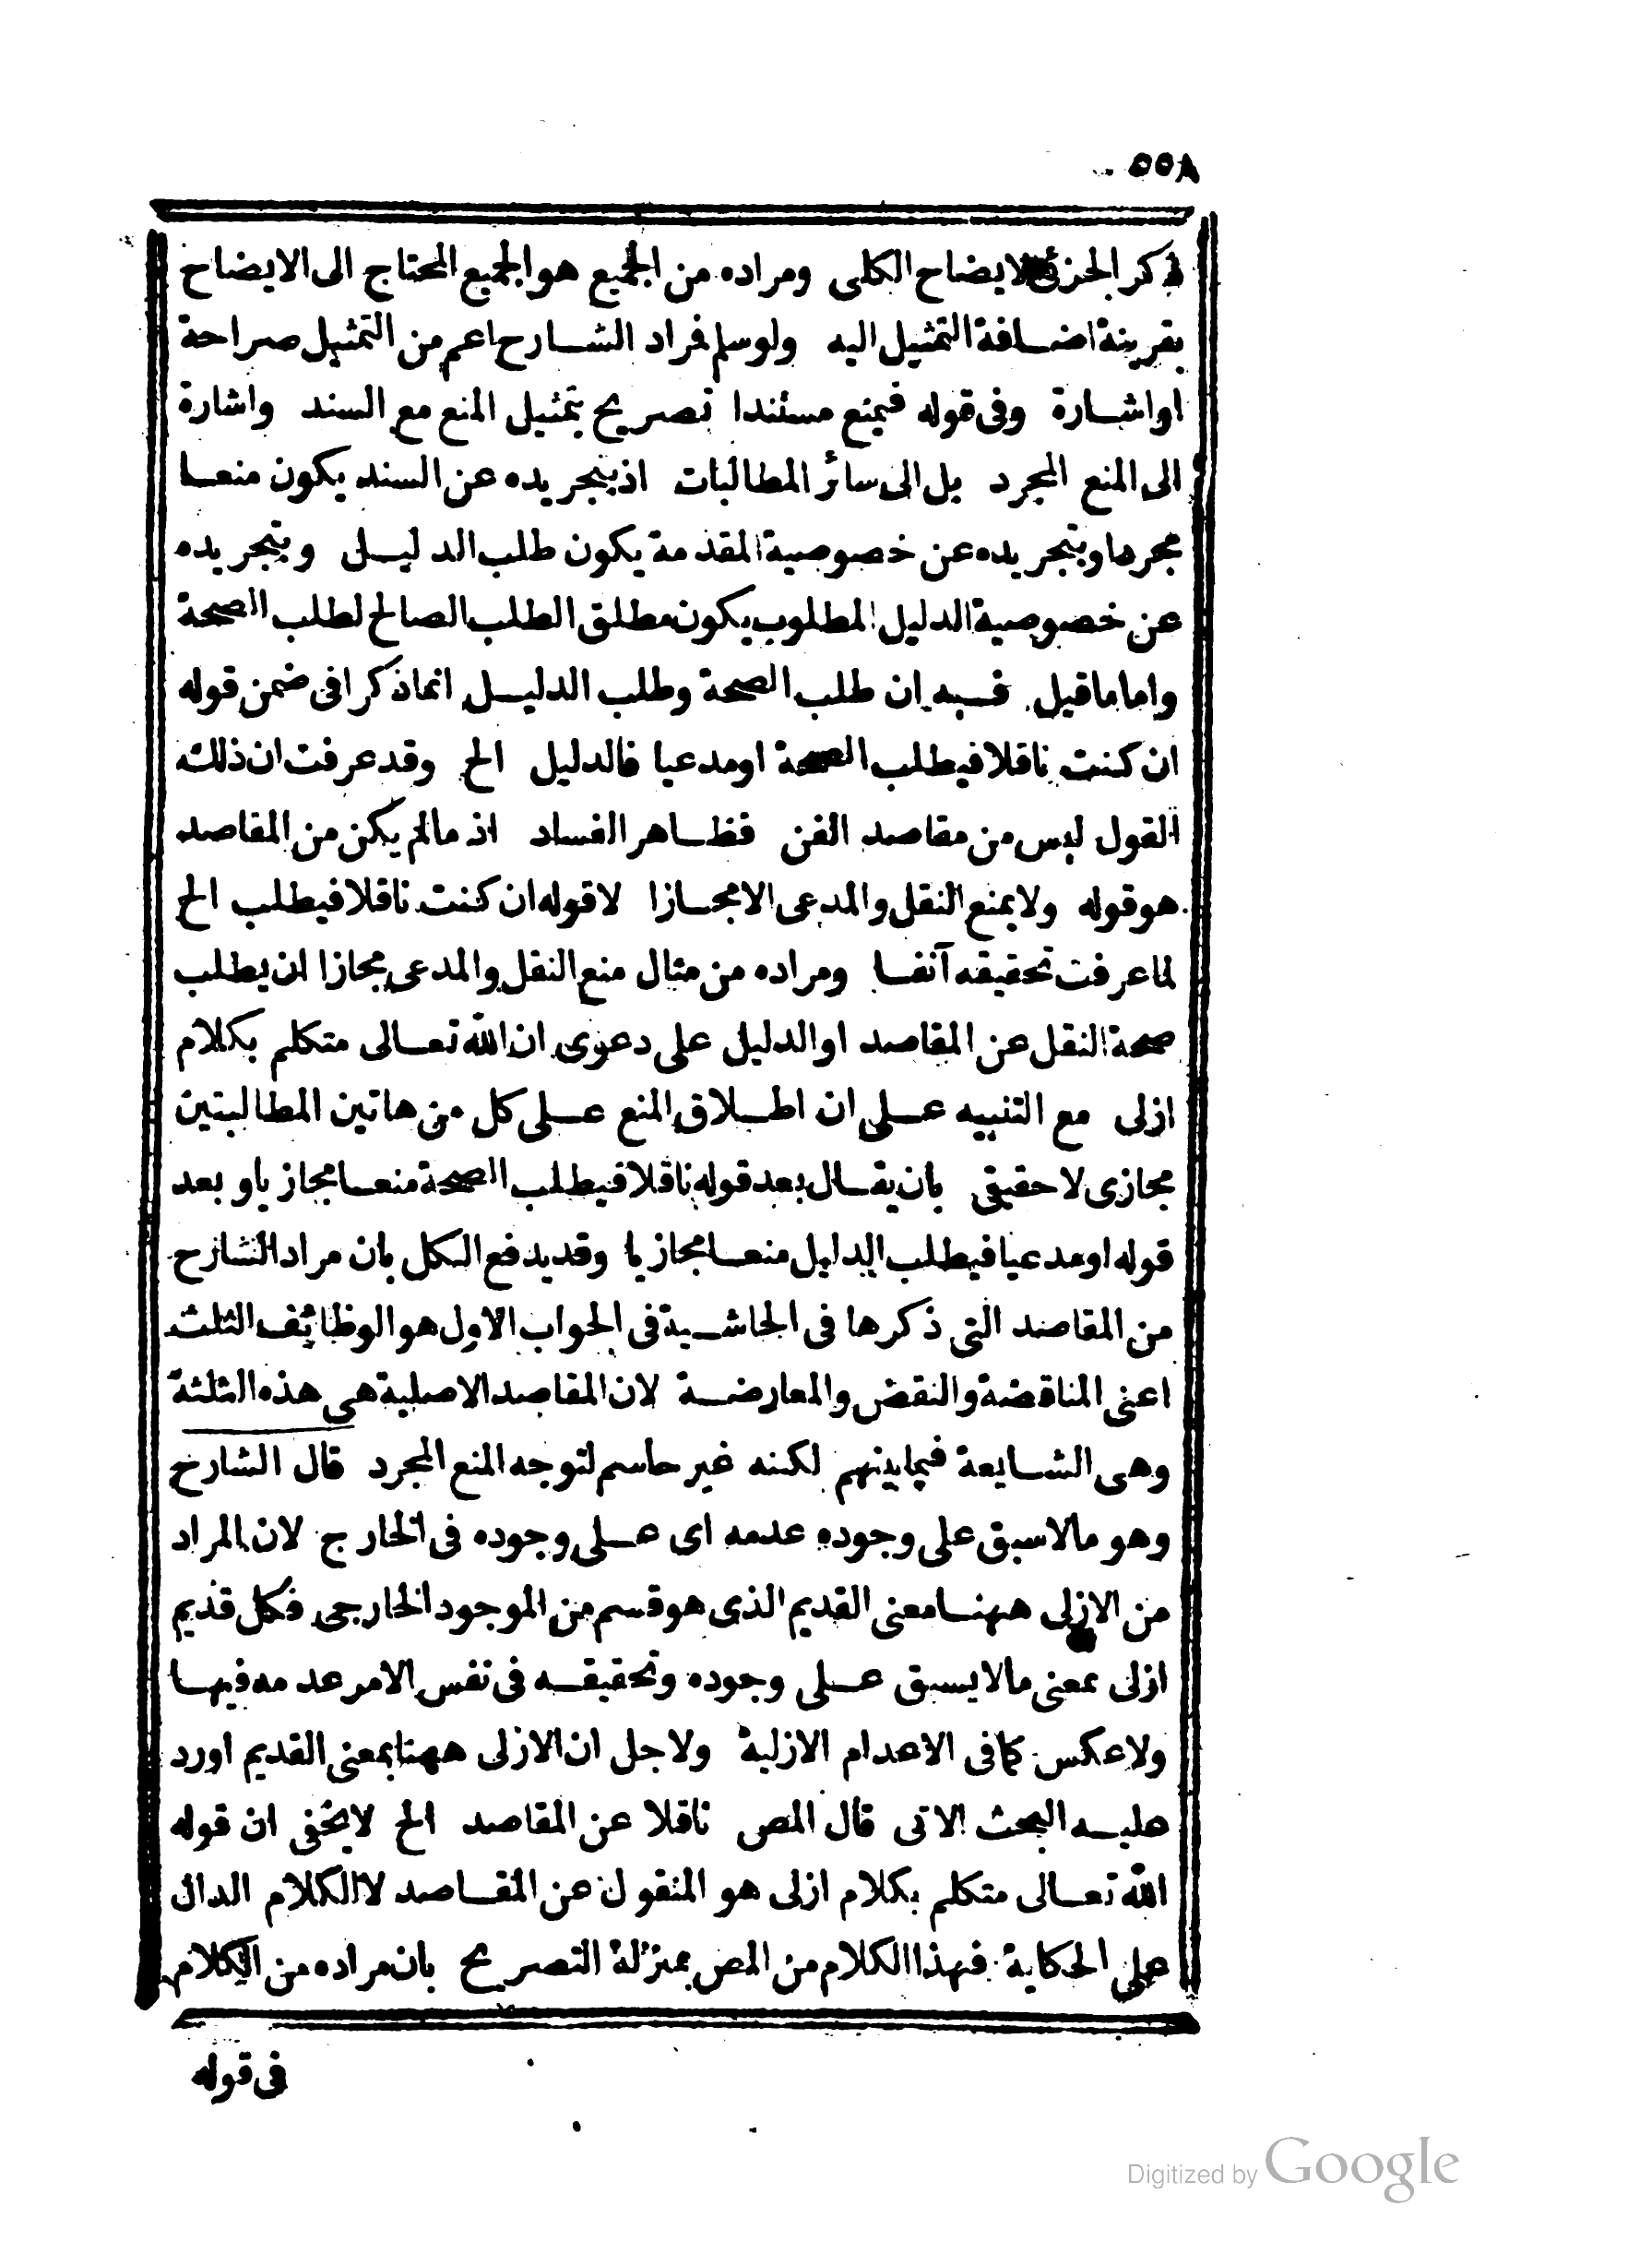 ٥٥٨
ذكر الجزئى لايضاح الكلى ومراده من الجميع هو الجميع المحتاج الى الايضاح
بقرينة اضافة التمثيل اليه ولو سلم فراد الشارح اعم من التمثيل صراحة
او اشارة وفى قوله فيمنع مستندا تصريح بتمثيل المنع مع السند واشارة
الى المنع المجرد بل الى سائر المطالبات اذ بتجريده عن السند يكون منعا
مجردا وبتجريده عن خصوصية المقدمة يكون طلب الدليل وبتجريده
عن خصوصية الدليل المطلوب يكون مطلق الطلب الصالح لطلب الصحة
واما ما قيل فيه ان طلب الصحة وطلب الدليل انما ذكرا فى ضمن قوله
ان كنت ناقلا فيطلب الصحة او مدعيا فالدليل الخ وقد عرفت ان ذلك
القول ليس من مقاصد الفن فظاهر الفساد اذ ما لم يكن من المقاصد
هو قوله ولا يمنع النقل والمدعى الا مجازا لا قوله ان كنت ناقلا فيطلب الخ
لما عرفت تحقيقه آنفا ومراده من مثال منع النقل والمدعى مجازا ان يطلب
صحة النقل عن المقاصد او الدليل على دعوى ان الله تعالى متكلم بكلام
ازلى مع التنبيه على ان اطلاق المنع على كل من هاتين المطالبتين
مجازى لا حقيقى بان يقال بعد قوله ناقلا فيطلب الصحة منعا مجازيا او بعد
قوله او مدعيا فيطلب الدليل منعا مجازيا وقد يدفع الكل بان مراد الشارح
من المقاصد التى ذكرها فى الحاشية فى الجواب الاول هو الوظائف الثلث
اعنى المناقضة والنقض والمعارضة لان المقاصد الاصلية هى هذه الثلثة
وهى الشايعة فيما بينهم لكنه غير حاسم لتوجه المنع المجرد قال الشارح
وهو مالا سبق على وجوده عدمه اى على وجوده فى الخارج لان المراد
من الازلى ههنا معنى القديم الذى هو قسم من الموجود الخارجى فكل قديم
ازلى بمعنى ما لا يسبق على وجوده وتحقيقه فى نفس الامر عدمه فيها
ولا عكس كما فى الاعدام الازلية ولاجل ان الازلى ههنا بمعنى القديم اورد
عليه البحث الاتى قال المص ناقلا عن المقاصد الخ لا يخفى ان قوله
الله تعالى متكلم بكلام ازلى هو المنقول عن المقاصد لا الكلام الدال
على الحكاية فهذا الكلام من المص بمنزلة التصريح بان مراده من الكلام
فى قوله
Digitized by Google